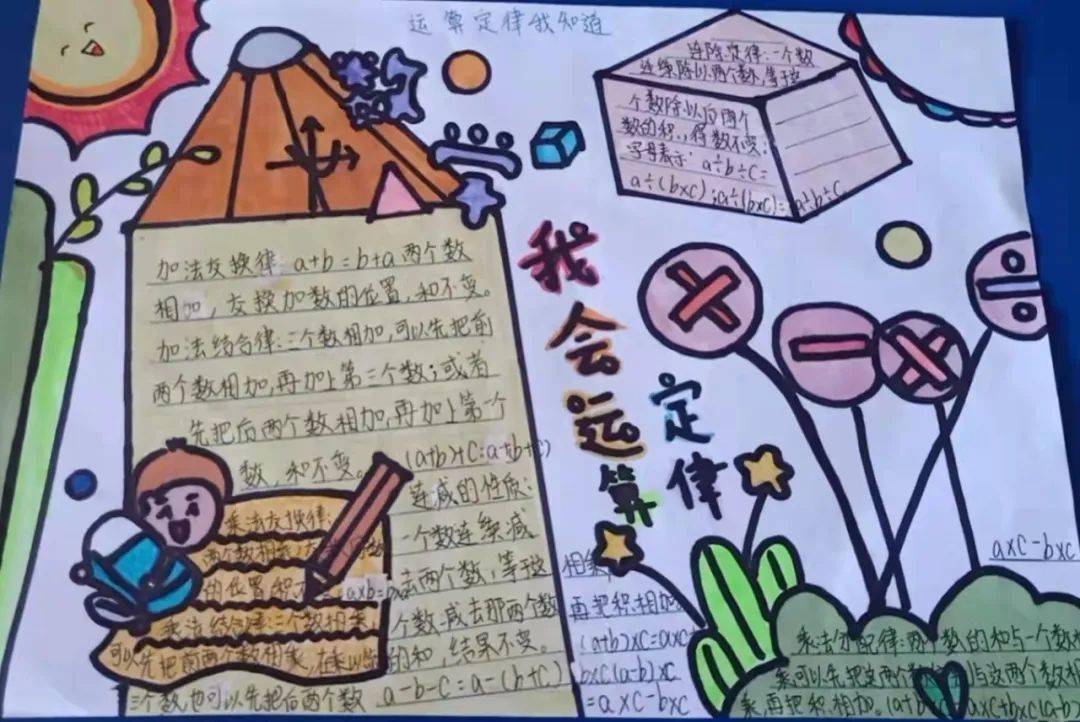 运算定律我知道
连除定律:一个数
连续除以两个数,等于这
个数除以后两个
数的积,得数不变;
字母表示:a÷b÷c=
a÷(b×c);a÷(b×c)=a÷b÷c
加法交换律:a+b=b+a两个数
相加,交换加数的位置,和不变。
加法结合律:三个数相加,可以先把前
两个数相加,再加上第三个数;或者
先把后两个数相加,再加上第一个
数,和不变。(a+b)+c=a+(b+c)
连减的性质:
一个数连续减
去两个数,等于这
个数减去那两个数
的和,结果不变。
a-b-c=a-(b+c)
乘法交换律:
两个数相乘
的位置积不 a×b=b×a
乘法结合律:三个数相乘
可以先把前两个数相乘,在乘以
三个数也可以先把后两个数
我会运算定律
相乘
再把积相加
(a+b)×c=a×c+
b×c(a-b)×c
=a×c-b×c
a×c-b×c
乘法分配律:两个数的和与一个数
乘可以先把这两个数 与这两个数相
乘,再把积相加。(a+b)×c=a×c+b×c(a-b)